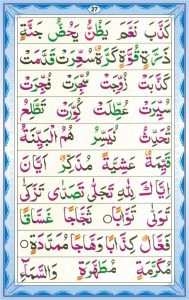 27
كَذَّبَ نَعَّمَ يَظُنُّ يَحُضُّ جَنَّةٍ
ذَرَّةٍ قُوَّةٍ كَرَّةٌ سُعِّرَتْ قَدَّمَتْ
كَذَّبَتْ زُوِّجَتْ سُجِّرَتْ فُجِّرَتْ
سُيِّرَتْ عُطِّلَتْ كُوِّرَتْ تَطَّلِعُ
تُحَدِّثُ نُيَسِّرُ هُمُ الْبَيِّنَةُ
قَيِّمَةٌ عَشِيَّةً مُذَكِّرٌ اَيَّانَ
اِيَّاكَ لِلّٰهِ تَجَلّٰى تَصَدّٰى تَزَكّٰى
تَوَلّٰى تَوَّابًا ثَجَّاجًا غَسَّاقًا
فَعَّالٌ كِذَّابًا وَهَّاجًا مُمَدَّدَةٍ
مُكَرَّمَةٍ مُطَهَّرَةٍ وَالسَّمَآءِ